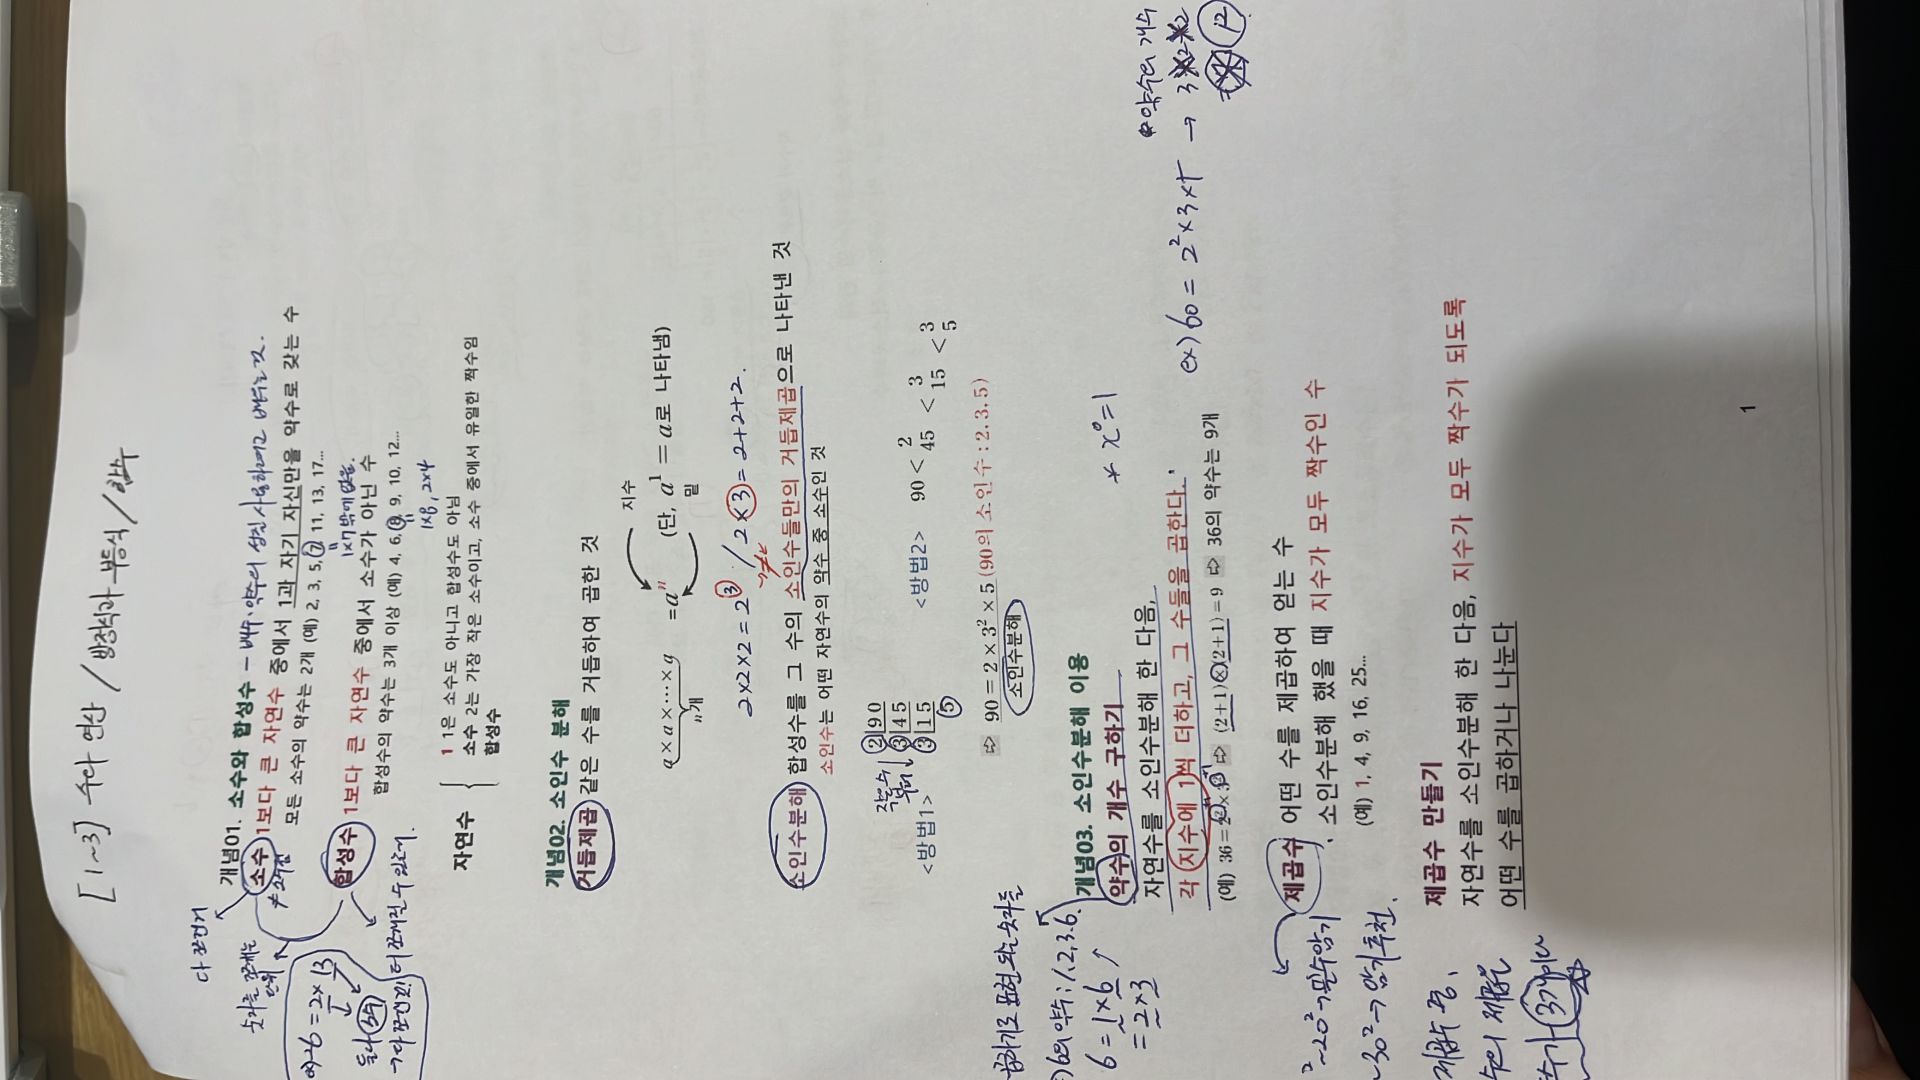 [1~3] 수와 연산 / 방정식과 부등식 / 함수
개념01. 소수와 합성수 - 배수, 약수의 성질 사용하려고 배우는 것.
소수 1보다 큰 자연수 중에서 1과 자기 자신만을 약수로 갖는 수
모든 소수의 약수는 2개 (예) 2, 3, 5, 7, 11, 13, 17...
1×7밖에 없음.
합성수 1보다 큰 자연수 중에서 소수가 아닌 수
합성수의 약수는 3개 이상 (예) 4, 6, 8, 9, 10, 12...
1×8, 2×4
다 쪼갠거
숫자를 쪼개는
26 = 2 × 13
둘다 소수
더 쪼개질 수 있는거.
자연수
1 1은 소수도 아니고 합성수도 아님
소수 2는 가장 작은 소수이고, 소수 중에서 유일한 짝수임
합성수
개념02. 소인수 분해
거듭제곱 같은 수를 거듭하여 곱한 것
지수
a×a×⋯×a = aⁿ (단, a¹ = a로 나타냄)
n개
밑
2×2×2 = 2³ / 2×3 = 2+2+2.
소인수분해 합성수를 그 수의 소인수들만의 거듭제곱으로 나타낸 것
소인수는 어떤 자연수의 약수 중 소수인 것
작은수
부터
<방법1>
2 90
3 45
3 15
5
<방법2>
90 < 2
45 < 3
15 < 3
5
⇨ 90 = 2 × 3² × 5 (90의 소인수 : 2, 3, 5)
소인수분해
개념03. 소인수분해 이용
약수의 개수 구하기
* x⁰=1
자연수를 소인수분해 한 다음,
각 지수에 1씩 더하고, 그 수들을 곱한다.
(예) 36 = 2² × 3² ⇨ (2+1)×(2+1) = 9 ⇨ 36의 약수는 9개
ex) 60 = 2² × 3 × 5 → 3×2×2
*약수의 개수
12
곱하기로 표현 되는 숫자들
6의 약수 : 1, 2, 3, 6.
6 = 1 × 6
= 2 × 3
제곱수 어떤 수를 제곱하여 얻는 수
소인수분해 했을 때 지수가 모두 짝수인 수
(예) 1, 4, 9, 16, 25...
~20² → 필수암기
~30² → 암기추천.
제곱수 만들기
자연수를 소인수분해 한 다음, 지수가 모두 짝수가 되도록
어떤 수를 곱하거나 나눈다
3개이다
1